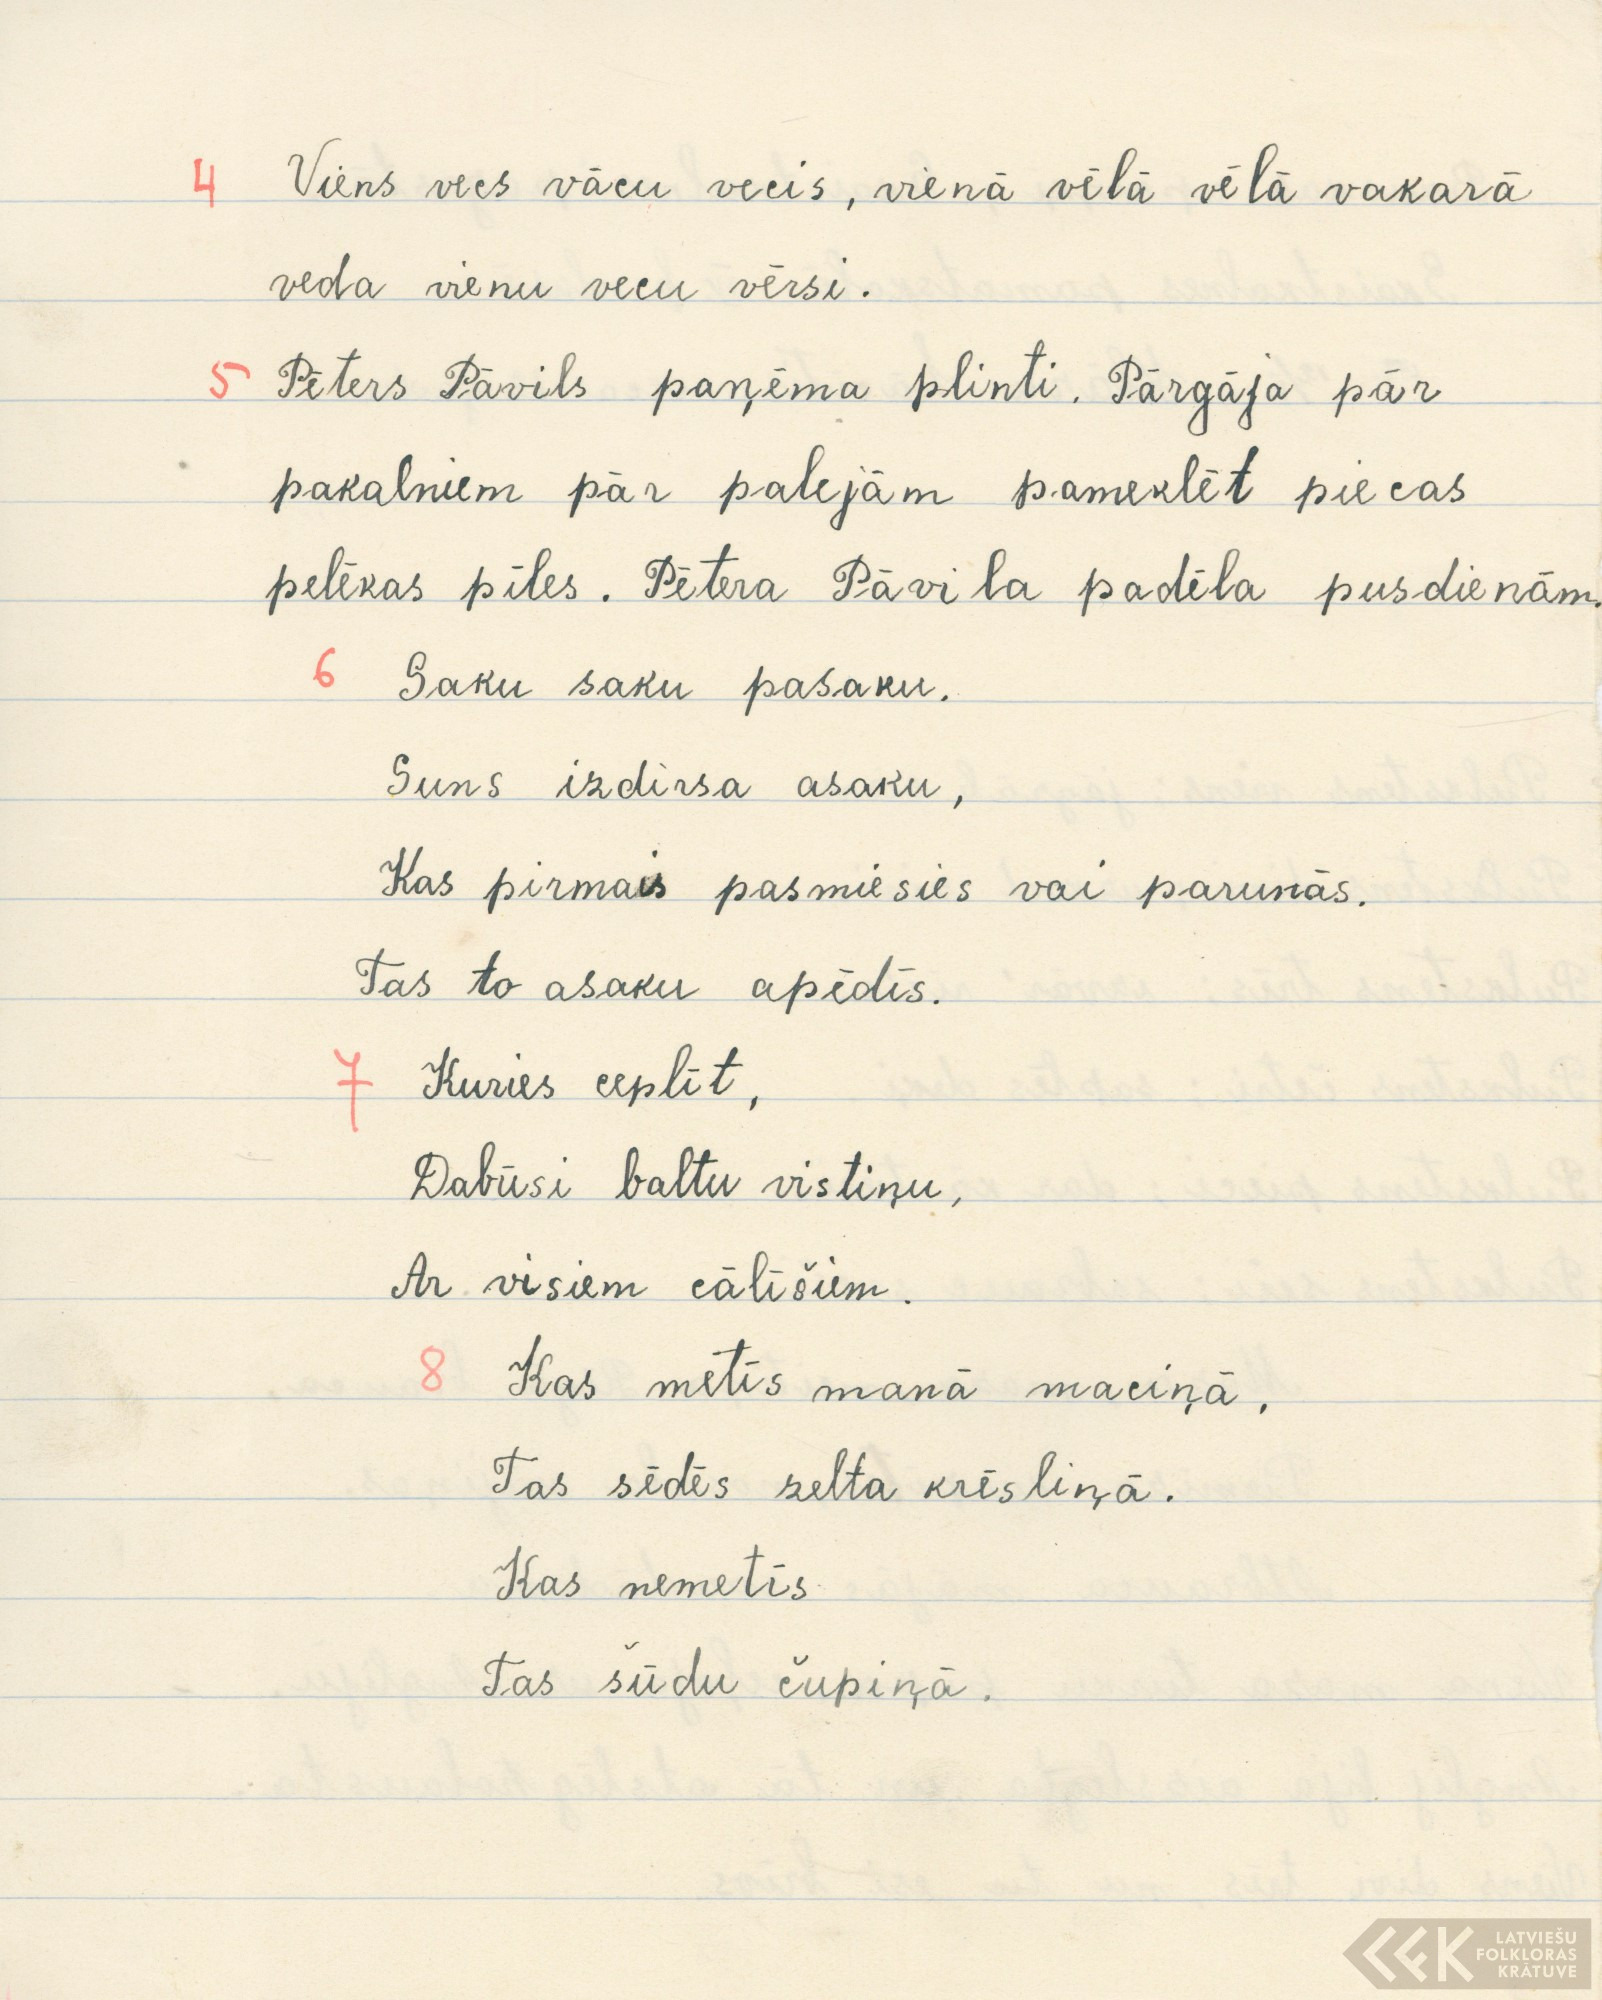 4 Viens vecs vācu vecis, vienā vēlā vēlā vakarā
veda vienu vecu vērsi.
5 Pēters Pāvils paņēma plinti. Pārgāja pār
pakalniem pār palejām pameklēt piecas
pelēkas pīles. Pētera Pāvila padēla pusdienām.
6 Saku saku pasaku.
Suns izdirsa asaku,
Kas pirmais pasmiesies vai parunās.
Tas to asaku apēdīs.
7 Kuries ceplīt,
Dabūsi baltu vistiņu,
Ar visiem cālīšiem.
8 Kas metīs manā maciņā,
Tas sēdēs zelta krēsliņā.
Kas nemetīs
Tas šūdu čupiņā.
LATVIEŠU
FOLKLORAS
KRĀTUVE